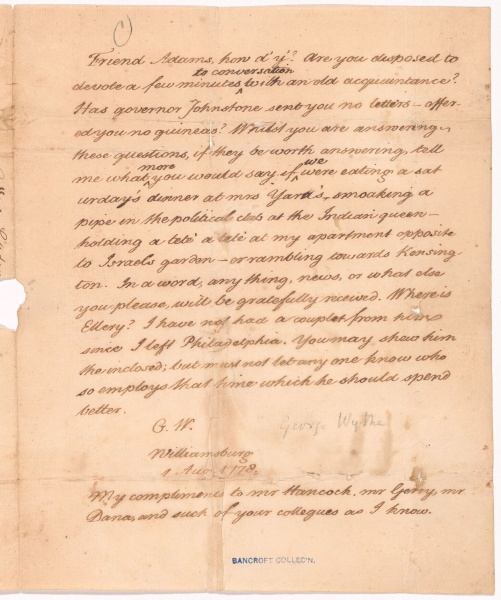 Friend Adams, how d'y'? Are you desposed to
to conversation
devote a few minutes ^ with an old acquaintance?
Has governor Johnstone sent you no letters—offer-
ed you no guineas? Whilst you are answering
these questions, if they be worth answering, tell
more we
me what ^ you would say if ^ were eating a sat
urday's dinner at mrs Yard's, smoaking a
pipe in the political club at the Indian queen—
holding a tete a tete at my apartment opposite
to Israel's garden—or rambling towards Kensing-
ton. In a word, any thing, news, or what else
you please, will be gratefully received. Where is
Ellery? I have not had a couplet from him
since I left Philadelphia. You may shew him
the inclosed; but must not let any one know who
so employs that time which he should spend
better.
G. W.
George Wythe
Williamsburg
1 Aug. 1778.
My compliments to mr Hancock, mr Gerry, mr
Dana, and such of your collegues as I know.
BANCROFT COLLEC'N.